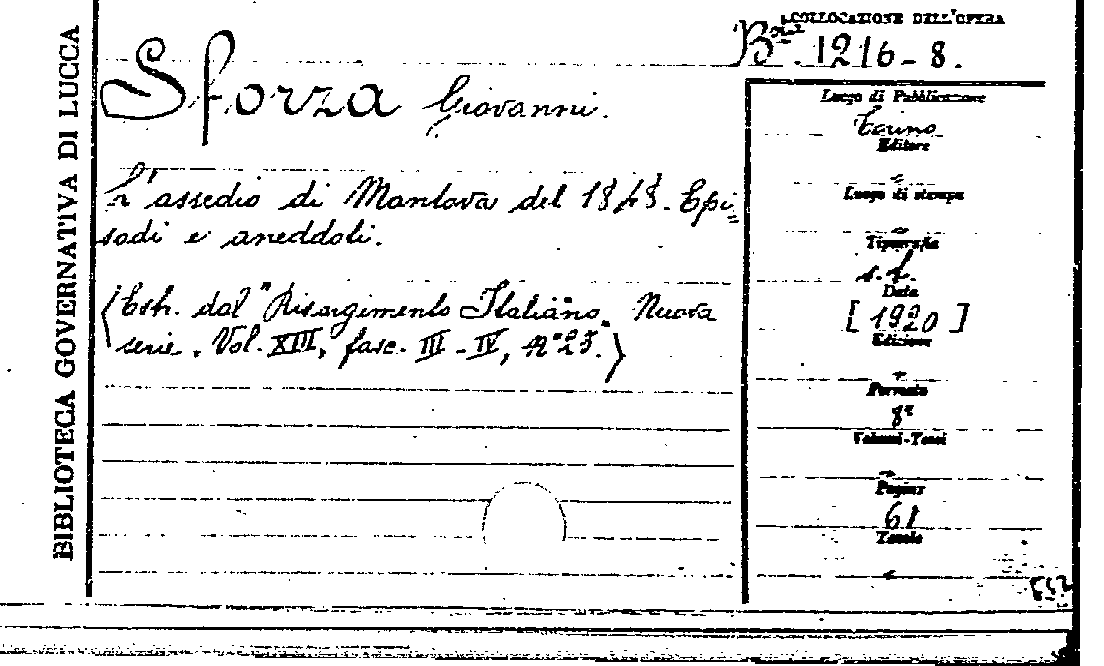 COLLOCAZIONE DELL'OPERA
1216-8.
BIBLIOTECA GOVERNATIVA DI LUCCA
Sforza Giovanni.
L'assedio di Mantova del 1848. Epi=
sodi e aneddoti.
(Estr. dal "Risorgimento Italiano" Nuova
serie. Vol. XIII, fasc. III-IV,
Luogo di Pubblicazione
Torino
Editore
Luogo di stampa
Tipografia
s.t.
Data
[1920]
Edizione
Formato
8°
Volumi-Tomi
Pagine
61
Tavole